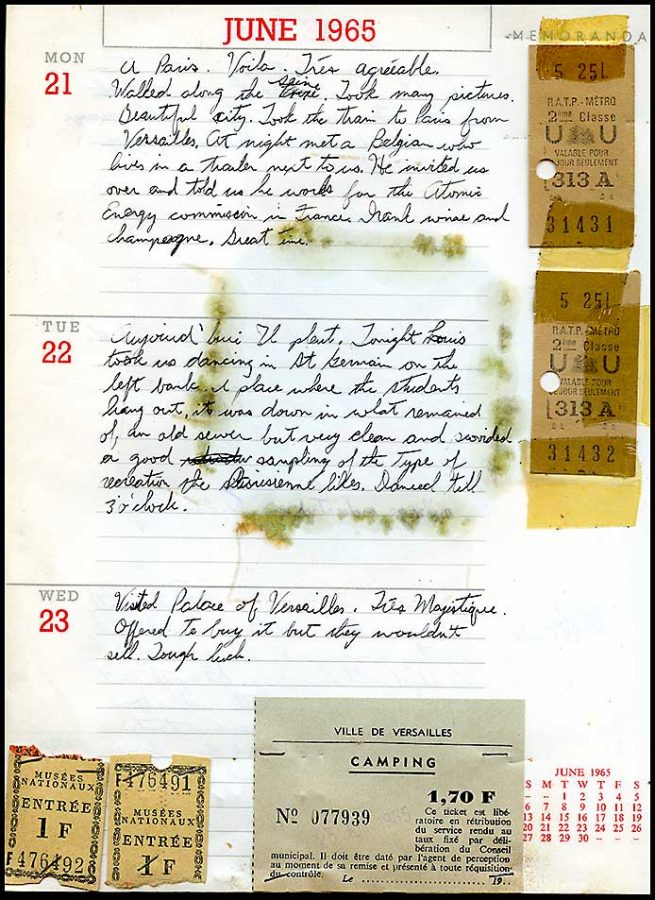 JUNE 1965
MEMORANDA
MON
21
A Paris. Voila. Très agréable.
Walked along the Seine. Took many pictures.
Beautiful city. Took the train to Paris from
Versailles. At night met a Belgian who
lives in a trailer next to us. He invited us
over and told us he works for the Atomic
Energy commission in France. Drank wine and
champagne. Great time.
TUE
22
Aujourd'hui Il pleut. Tonight Louis
took us dancing in St Germain on the
left bank. A place where the students
hang out, it was down in what remained
of, an old sewer but very clean and
a good sampling of the type of
recreation the Parisienne likes. Danced till
3 o'clock.
WED
23
Visited Palace of Versailles. Très Majestique.
Offered to buy it but they wouldn't
sell. Tough luck.
5 251
R.A.T.P.-MÉTRO
2ème Classe
U U
VALABLE POUR
JOUR SEULEMENT
313 A
31431
5 251
R.A.T.P.-MÉTRO
2ème Classe
U U
VALABLE POUR
JOUR SEULEMENT
313 A
31432
MUSÉES
NATIONAUX
ENTRÉE
1 F
F 476492
F 476491
MUSÉES
NATIONAUX
ENTRÉE
1 F
VILLE DE VERSAILLES
CAMPING
1,70 F
Nº 077939
Ce ticket est libé-
ratoire en rétribution
du service rendu au
taux fixé par déli-
bération du Conseil
municipal. Il doit être daté par l'agent de perception
au moment de sa remise et présenté à toute réquisition
du contrôle.
Le 19
JUNE 1965
S M T W T F S
– – 1 2 3 4 5
6 7 8 9 10 11 12
13 14 15 16 17 18 19
20 21 22 23 24 25 26
27 28 29 30 – – –